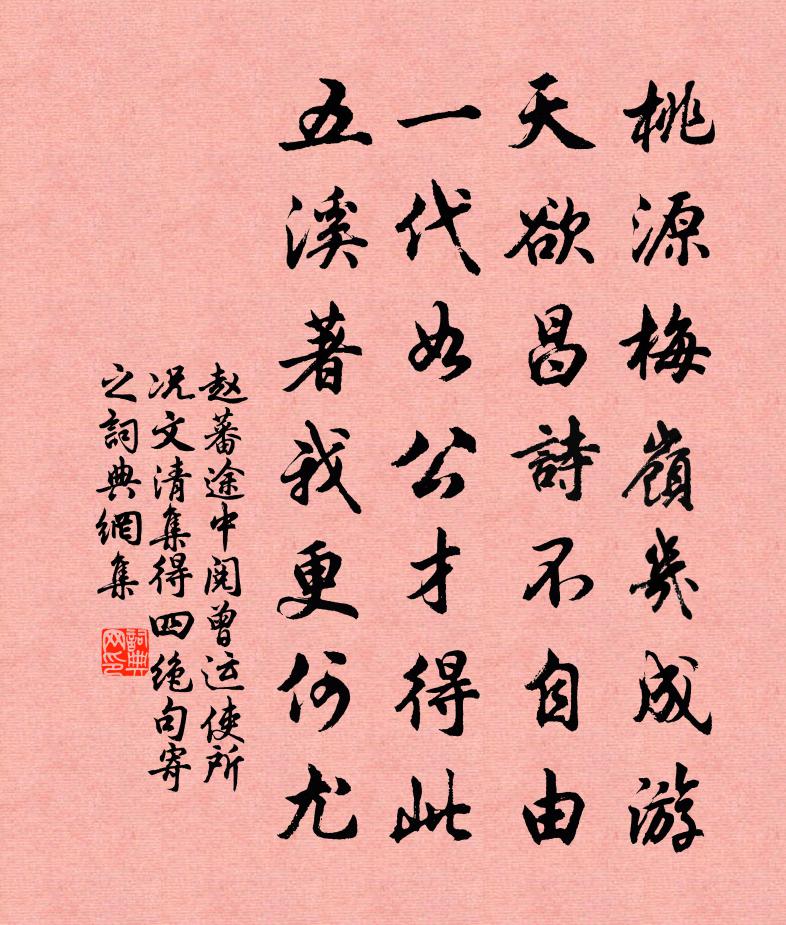 桃源梅嶺幾成游
天欲昌詩不自由
一代如公才得此
五溪著我更何尤
赵蕃途中閱曾运使所
况文清集得四绝句寄
之詞典網集
詞典网印